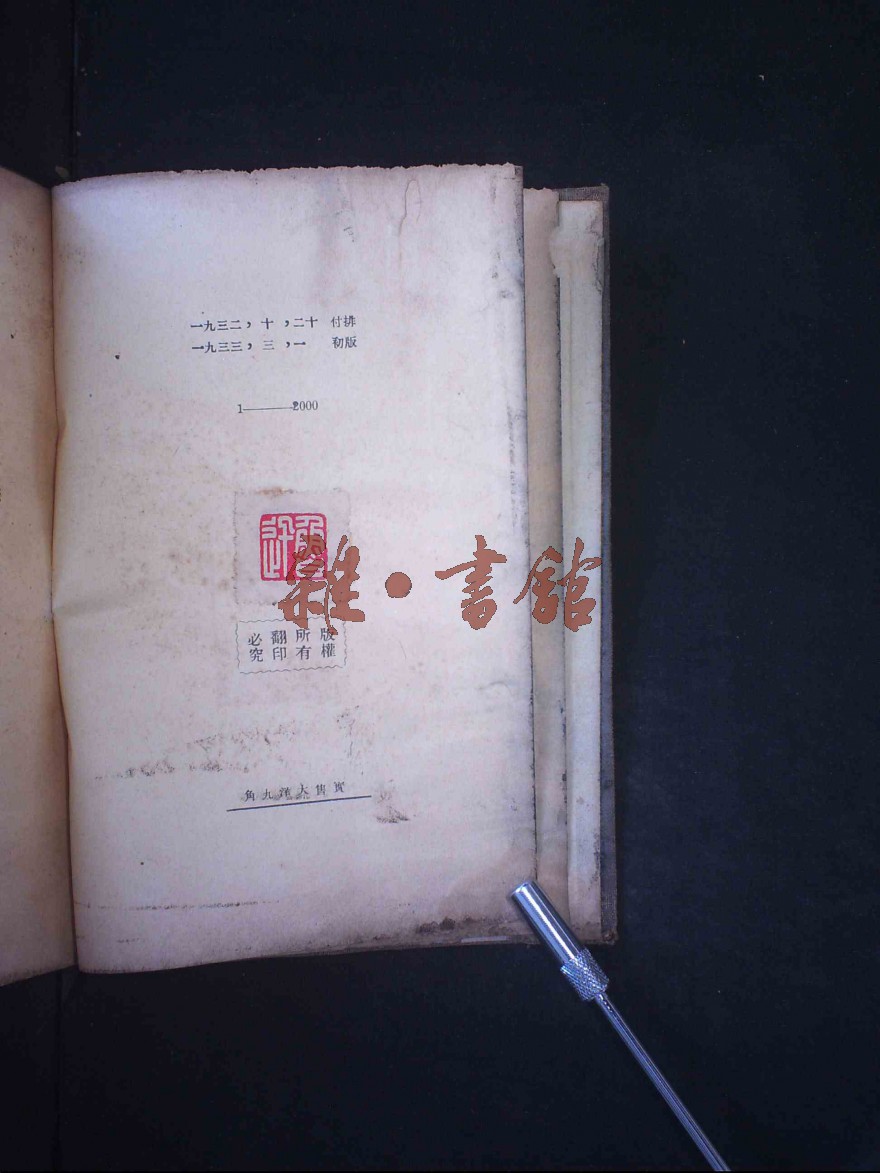 一九三二，十，二十 付排
一九三三，三，一 初版
1———2000
版權
所有
翻印
必究
實售大洋九角
雜·書館